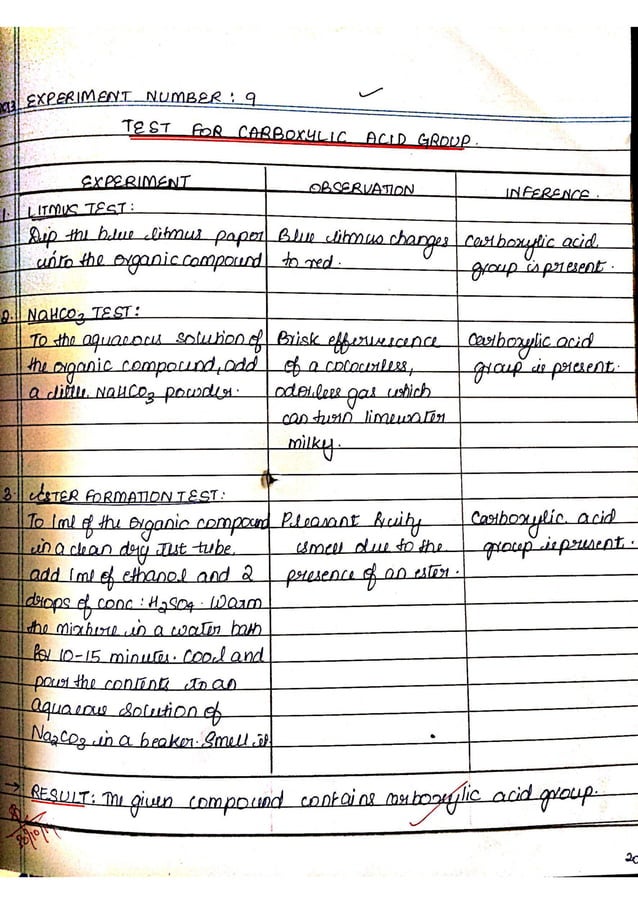 EXPERIMENT NUMBER: 9
TEST FOR CARBOXYLIC ACID GROUP.
EXPERIMENT OBSERVATION INFERENCE.
1. LITMUS TEST:
Dip the blue litmus paper Blue litmus changes Carboxylic acid
into the organic compound to red. group is present.
2. NaHCO3 TEST:
To the aquaeous solution of Brisk effervescence Carboxylic acid
the organic compound, add of a colourless, group is present.
a little NaHCO3 powder. odorless gas which
can turn limewater
milky.
3. ESTER FORMATION TEST:
To 1ml of the organic compound Pleasant fruity Carboxylic acid
in a clean dry test tube, smell due to the group is present.
add 1ml of ethanol and 2 presence of an ester.
drops of conc: H2SO4. Warm
the mixture in a water bath
for 10-15 minutes. Cool and
pour the contents in an
aquaeous solution of
Na2CO3 in a beaker. Smell it
→ RESULT: The given compound contains carboxylic acid group.
20